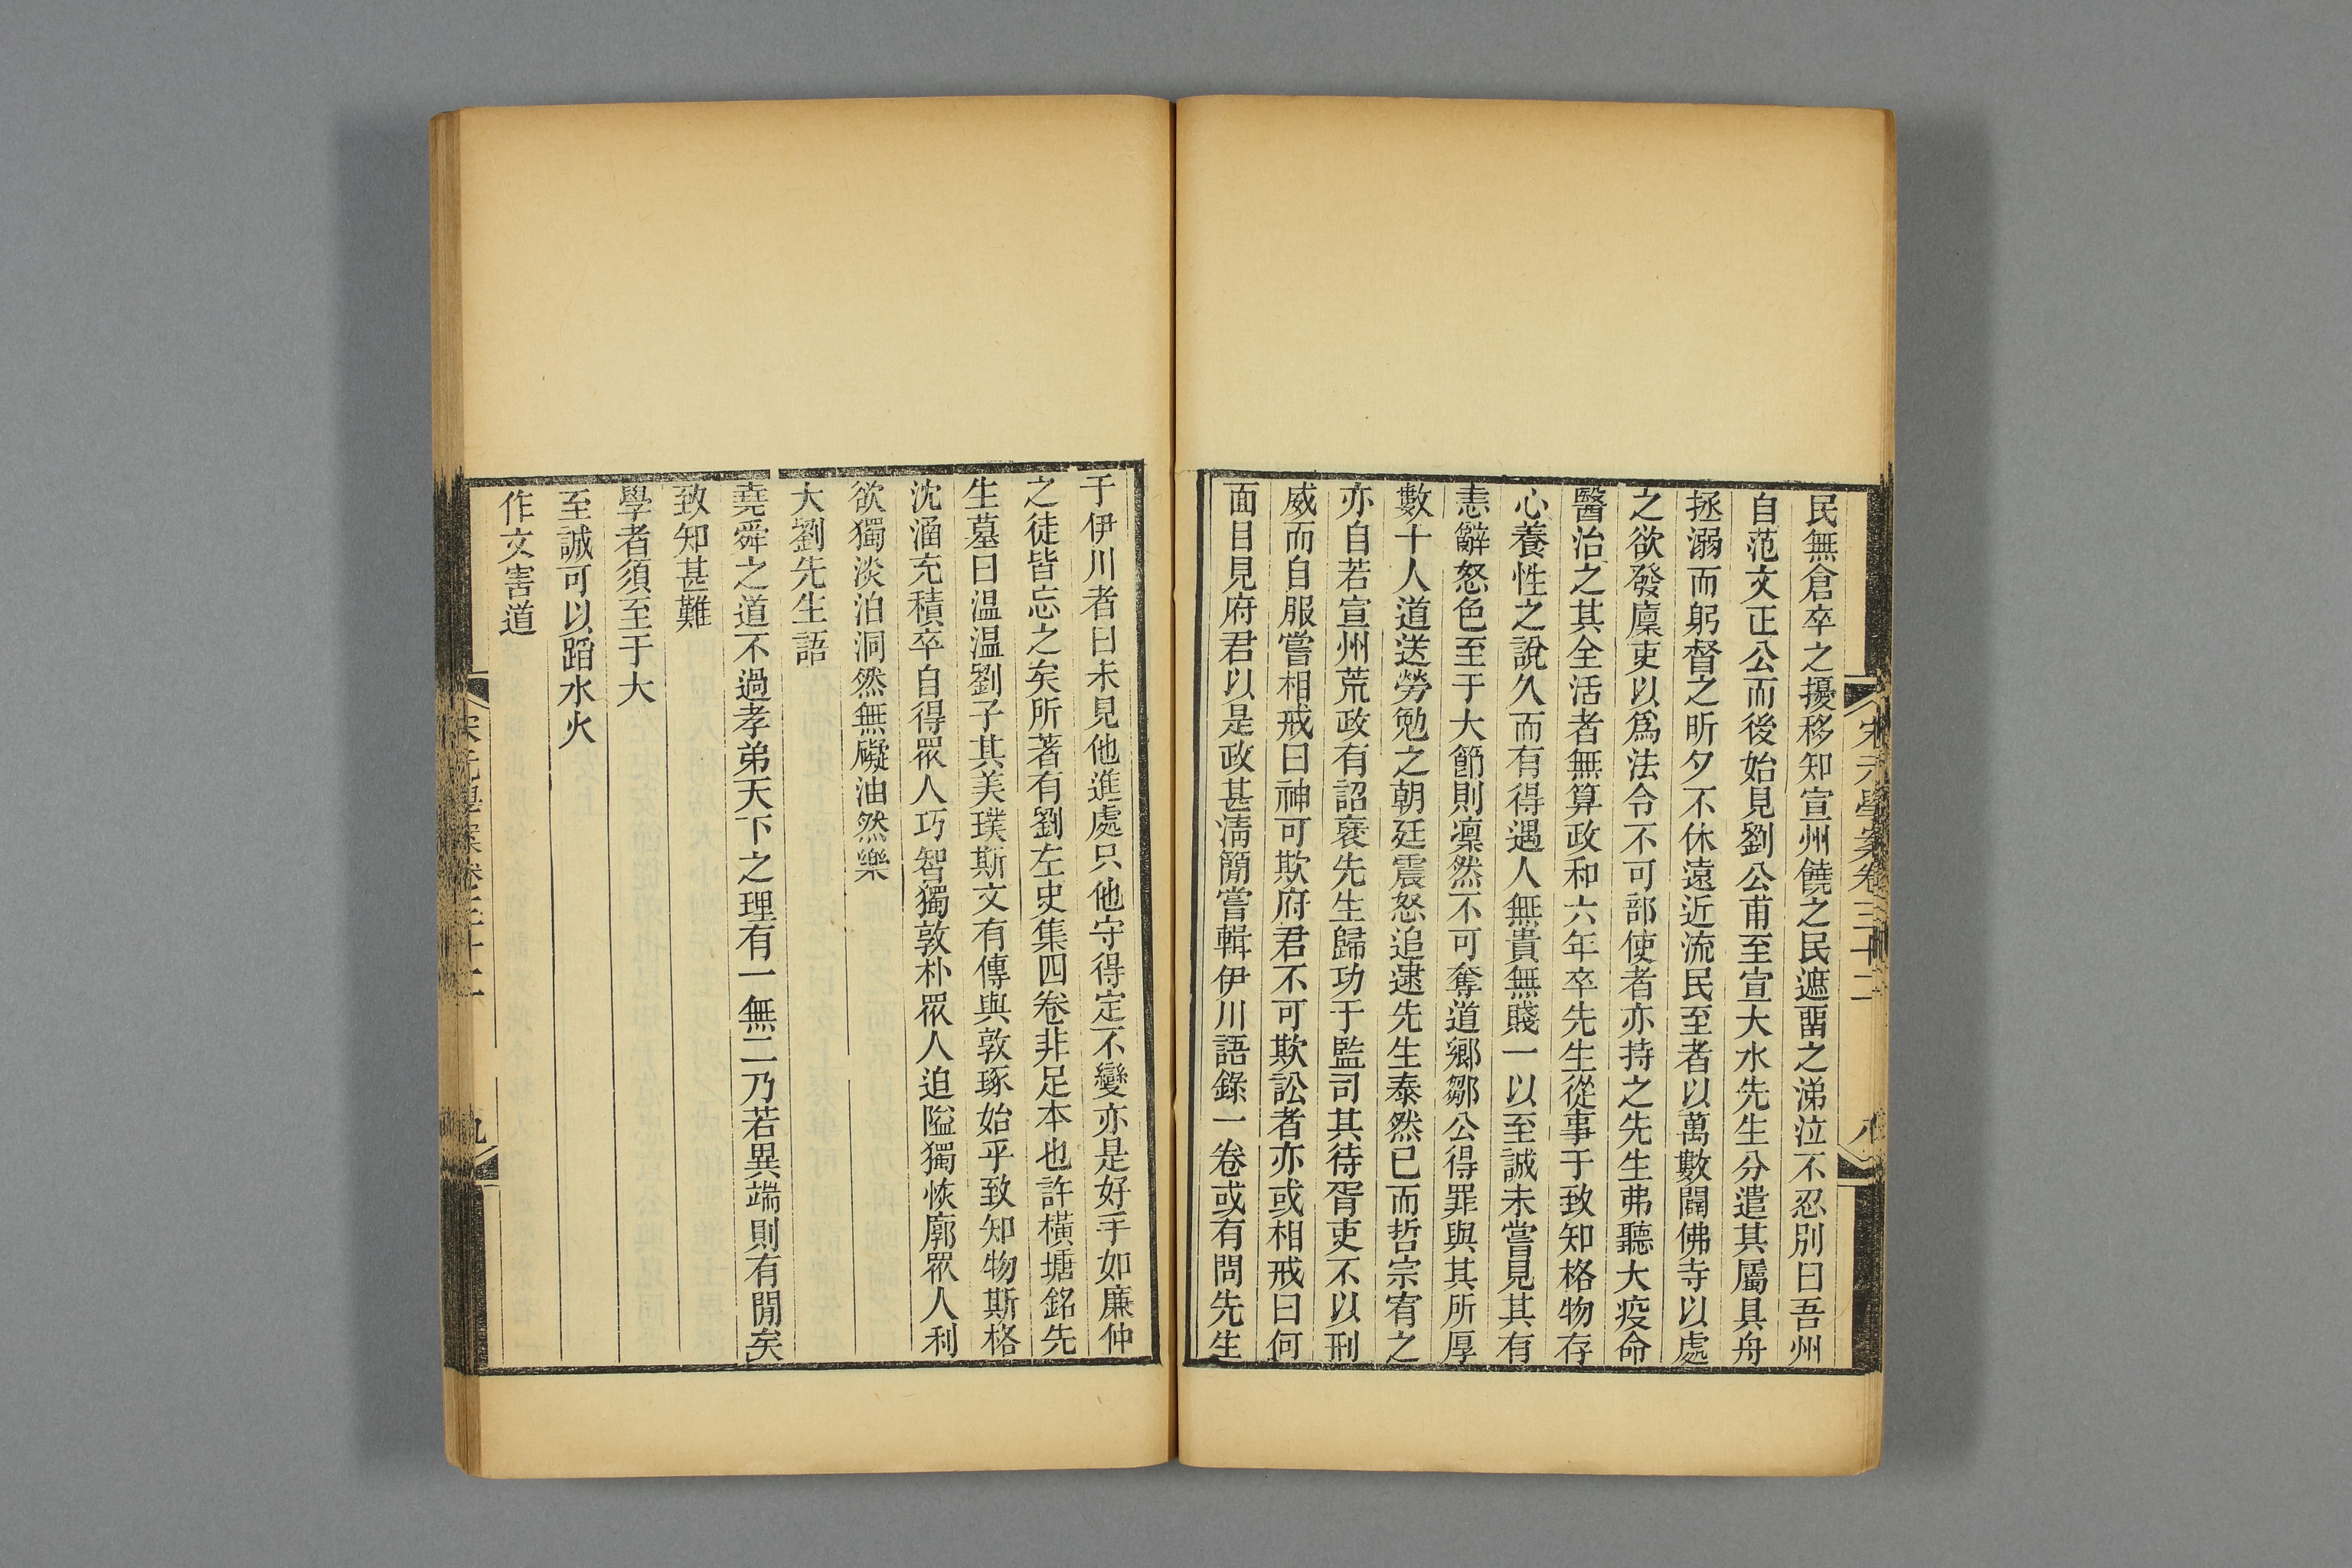 民無倉卒之擾移知宣州饒之民遮畱之涕泣不忍別曰吾州
自范文正公而後始見劉公甫至宣大水先生分遣其屬具舟
拯溺而躬督之昕夕不休遠近流民至者以萬數闢佛寺以處
之欲發廩吏以爲法令不可部使者亦持之先生弗聽大疫命
醫治之其全活者無算政和六年卒先生從事于致知格物存
心養性之說久而有得遇人無貴無賤一以至誠未嘗見其有
恚辭怒色至于大節則凛然不可奪道鄉鄒公得罪與其所厚
數十人道送勞勉之朝廷震怒追逮先生泰然已而哲宗宥之
亦自若宣州荒政有詔襃先生歸功于監司其待胥吏不以刑
威而自服嘗相戒曰神可欺府君不可欺訟者亦或相戒曰何
面目見府君以是政甚淸簡嘗輯伊川語錄一卷或有問先生
宋元學案卷三十二
八
于伊川者曰未見他進處只他守得定不變亦是好手如廉仲
之徒皆忘之矣所著有劉左史集四卷非足本也許橫塘銘先
生墓曰溫溫劉子其美璞斯文有傳與敦琢始乎致知物斯格
沈涵充積卒自得眾人巧智獨敦朴眾人迫隘獨恢廓眾人利
欲獨淡泊洞然無礙油然樂
大劉先生語
堯舜之道不過孝弟天下之理有一無二乃若異端則有閒矣
致知甚難
學者須至于大
至誠可以蹈水火
作文害道
宋元學案卷三十二
九